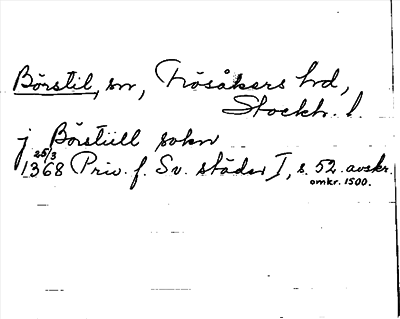 Börstil, sn, Frösåkers hd,
Stockh. l.
j Börstiill sokn
25/3
1368 Priv. f. Sv. städer I, s. 52. avskr.
omkr. 1500.